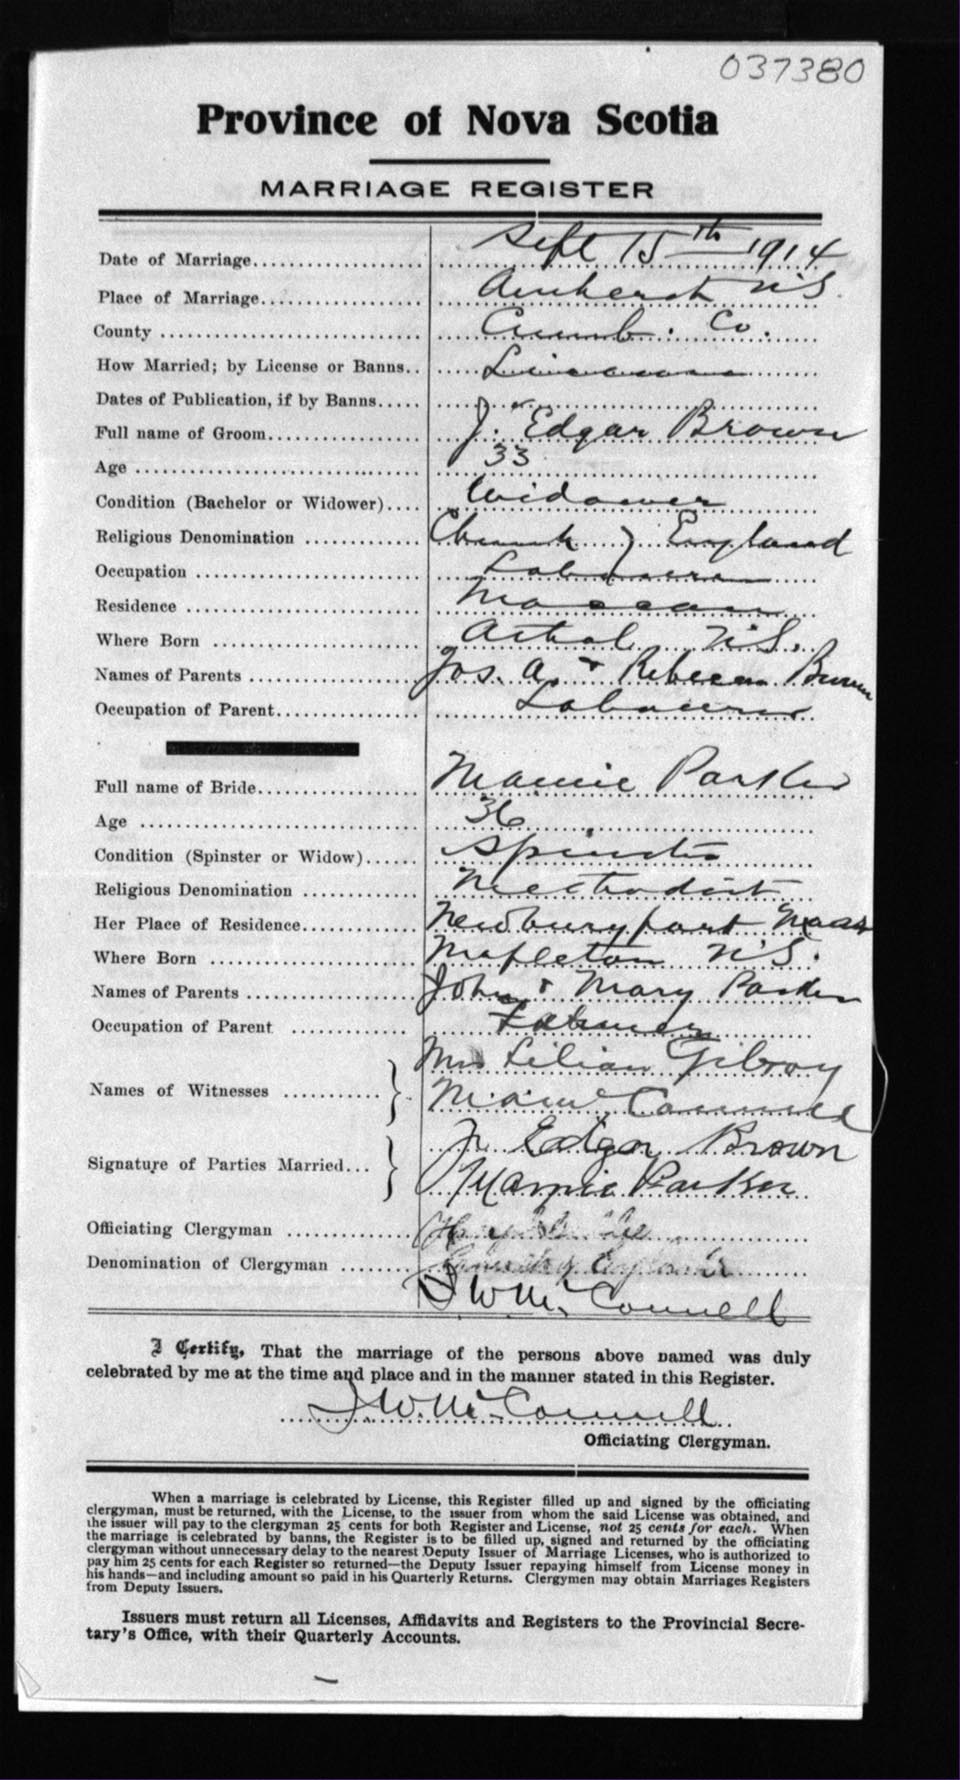 037380
Province of Nova Scotia
MARRIAGE REGISTER
Date of Marriage Sept 15th 1914
Place of Marriage Amherst N.S.
County Cumb. Co.
How Married; by License or Banns License
Dates of Publication, if by Banns
Full name of Groom J. Edgar Brown
Age 33
Condition (Bachelor or Widower) Widower
Religious Denomination Church of England
Occupation Labourer
Residence Maccan
Where Born N.S.
Names of Parents Jos. A. + Rebecca Brown
Occupation of Parent Labourer
Full name of Bride Mamie Parker
Age 36
Condition (Spinster or Widow) Spinster
Religious Denomination Methodist
Her Place of Residence Newburyport Mass
Where Born Mapleton N.S.
Names of Parents John + Mary Parker
Occupation of Parent
Names of Witnesses Mrs Lilian Gilroy
McConnell
Signature of Parties Married J. Edgar Brown
Mamie Parker
Officiating Clergyman
Denomination of Clergyman
J W McConnell
I Certify, That the marriage of the persons above named was duly
celebrated by me at the time and place and in the manner stated in this Register.
J W McConnell
Officiating Clergyman.
When a marriage is celebrated by License, this Register filled up and signed by the officiating
clergyman, must be returned, with the License, to the issuer from whom the said License was obtained, and
the issuer will pay to the clergyman 25 cents for both Register and License, not 25 cents for each. When
the marriage is celebrated by banns, the Register is to be filled up, signed and returned by the officiating
clergyman without unnecessary delay to the nearest Deputy Issuer of Marriage Licenses, who is authorized to
pay him 25 cents for each Register so returned—the Deputy Issuer repaying himself from License money in
his hands—and including amount so paid in his Quarterly Returns. Clergymen may obtain Marriages Registers
from Deputy Issuers.
Issuers must return all Licenses, Affidavits and Registers to the Provincial Secre-
tary's Office, with their Quarterly Accounts.